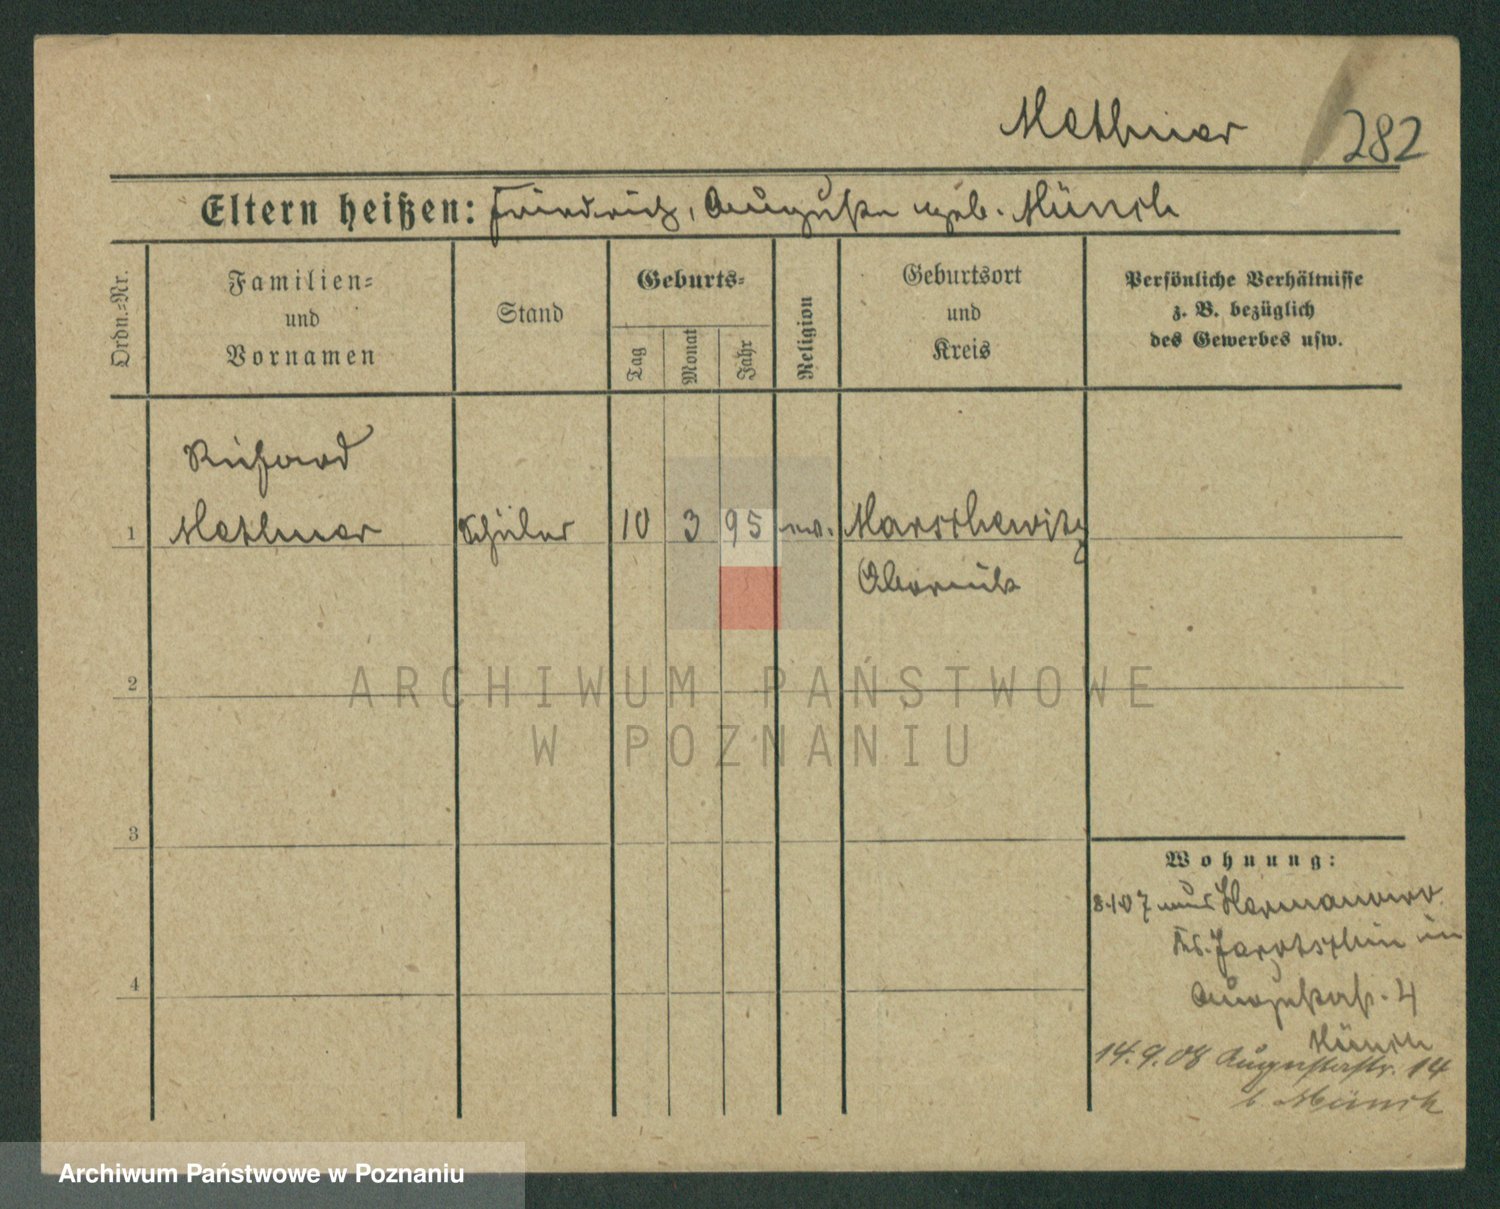 Methner 282
Eltern heißen: Friedrich, Auguste geb. Münch
Ordn.-Nr.
Familien-
und
Vornamen
Stand
Geburts-
Tag
Monat
Jahr
Religion
Geburtsort
und
Kreis
Persönliche Verhältnisse
z. B. bezüglich
des Gewerbes usw.
Richard
1 Methner Schüler 10 3 95 ev. Marschewitz
Obornik
2
3
4
Wohnung:
8 10 7 aus Hermanowo
Jarotschin in
Augustastr. 4
Münch
14.9.08 Augustastr. 14
b Münch
ARCHIWUM PAŃSTWOWE
W POZNANIU
Archiwum Państwowe w Poznaniu